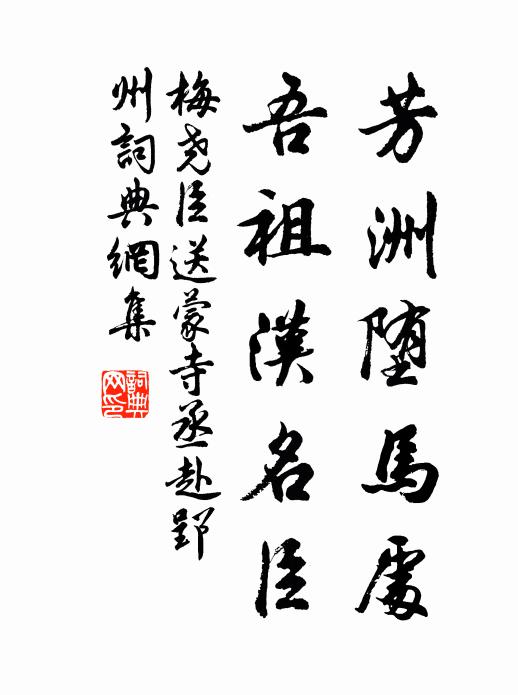 芳洲堕馬處
吾祖漢名臣
梅堯臣送蒙寺丞赴郢
州詞典網集
詞典
网印